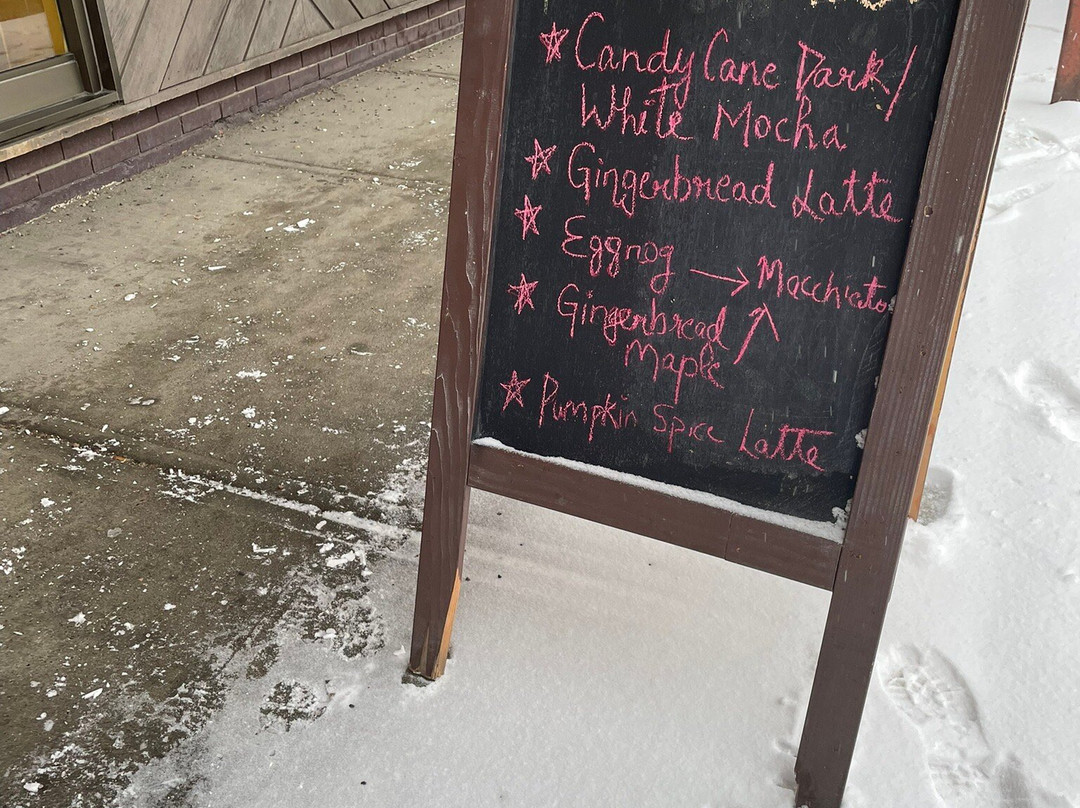 ☆ Candy Cane Dark/
White Mocha
☆ Gingerbread Latte
☆ Eggnog → Macchiato
☆ Gingerbread ↑
Maple
☆ Pumpkin Spice Latte